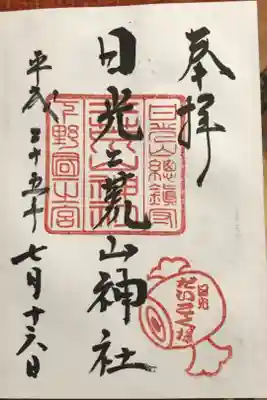 奉拝
日光山總鎮守
日光二荒山神社
下野國一宮
平成二十五年七月十六日
日光
だいこく様